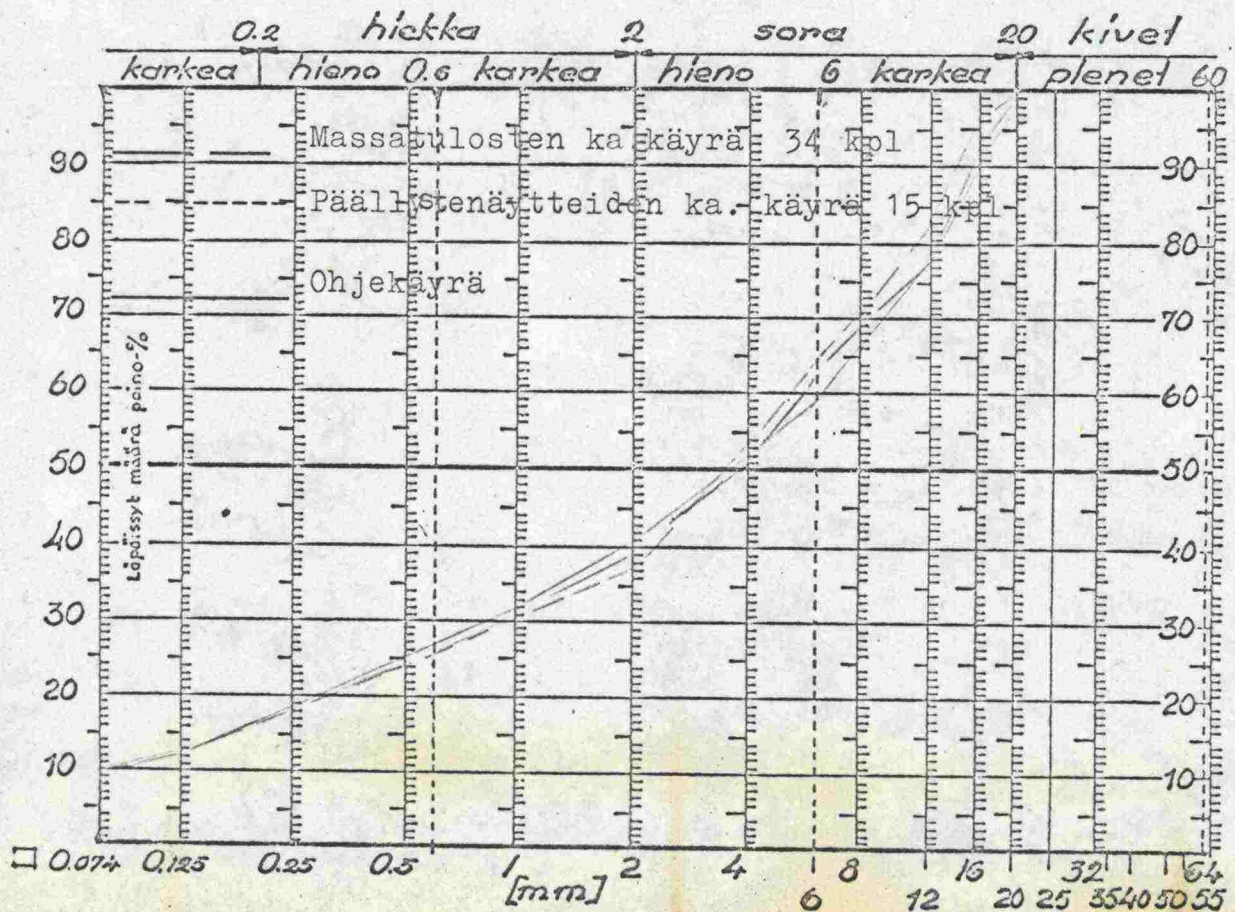 0.2 hiekka 2 sora 20 kivet
karkea hieno 0.6 karkea hieno 6 karkea pienet 60
Massatulosten ka käyrä 34 kpl
Päällystenäytteiden ka. käyrä 15 kpl
Ohjekäyrä
Läpäissyt määrä paino-%
90 90
80 80
70 70
60 60
50 50
40 40
30 30
20 20
10 10
0.074 0.125 0.25 0.5 1 2 4 8 16 32 64
[mm] 6 12 20 25 35 40 50 55